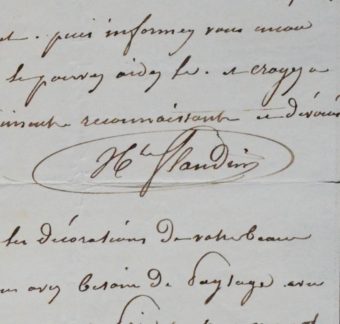 puis informez vous
le pouvez aidez le. et croyez a
reconnaissante et dévoué
H.te Flandrin
les décorations de votre beau
avez besoin de paysage avec